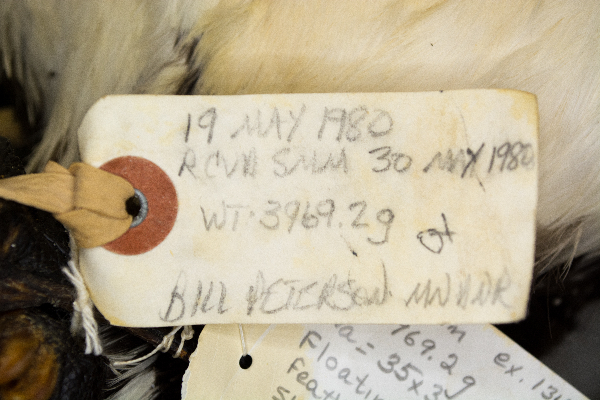 19 MAY 1980
RCVD SMM 30 MAY 1980
WT: 3969.2g
BILL PETERSON MN DNR
m ex. 131
769.2g
a = 35x3
Floatin
Feath